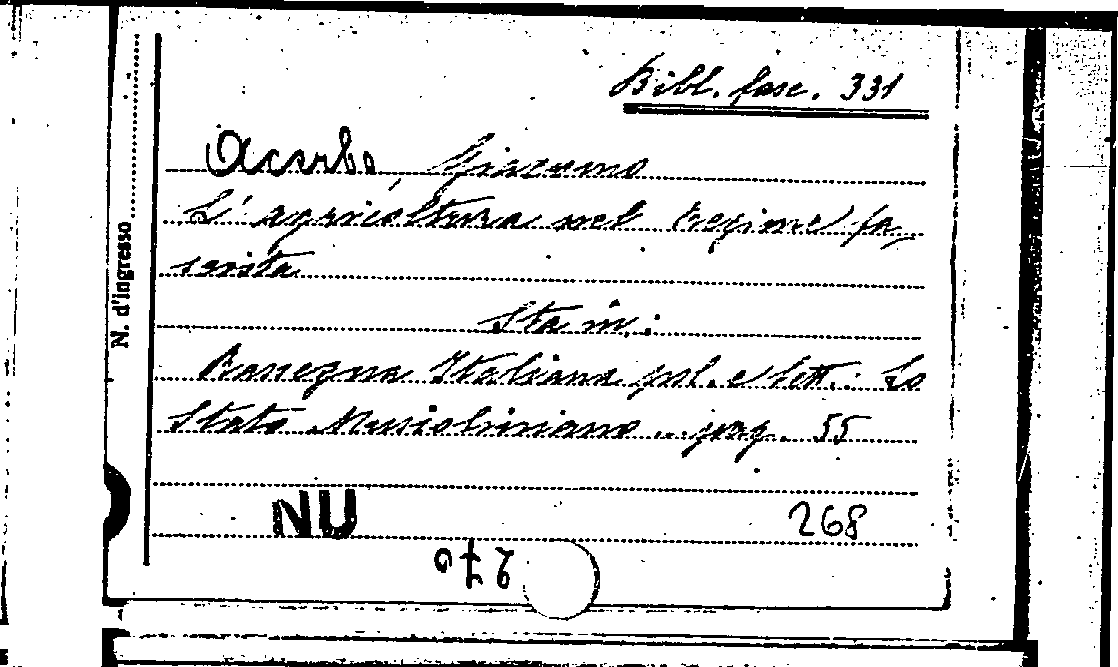 Bibl. fasc. 331
Acerbo, Giacomo
L'agricoltura nel regime fa-
scista
Sta in:
Rassegna Italiana pol. e lett.: Lo
Stato Mussoliniano... pag. 55
N. d'ingresso
NU
268